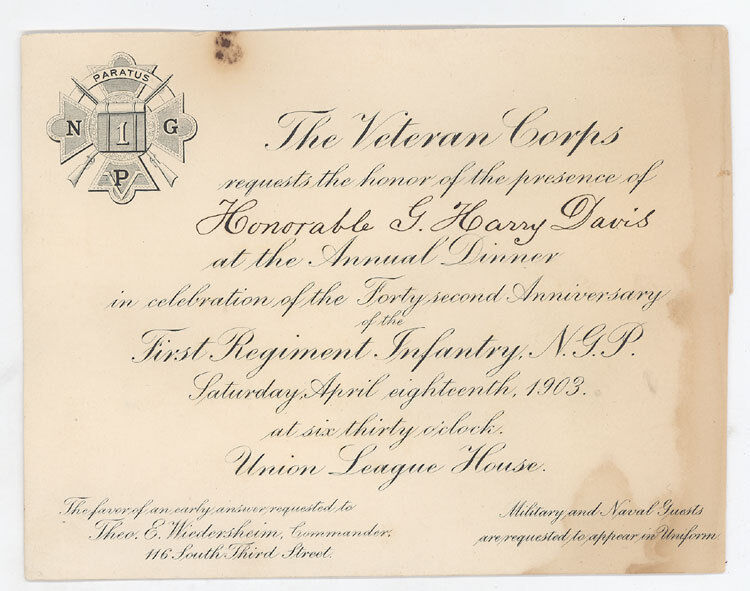 PARATUS
N 1 G
P
The Veteran Corps
requests the honor of the presence of
Honorable G. Harry Davis
at the Annual Dinner
in celebration of the Forty second Anniversary
of the
First Regiment Infantry, N.G.P.
Saturday, April eighteenth, 1903.
at six thirty o'clock.
Union League House.
The favor of an early answer requested to
Theo. E. Wiedersheim, Commander,
116 South Third Street.
Military and Naval Guests
are requested to appear in Uniform.